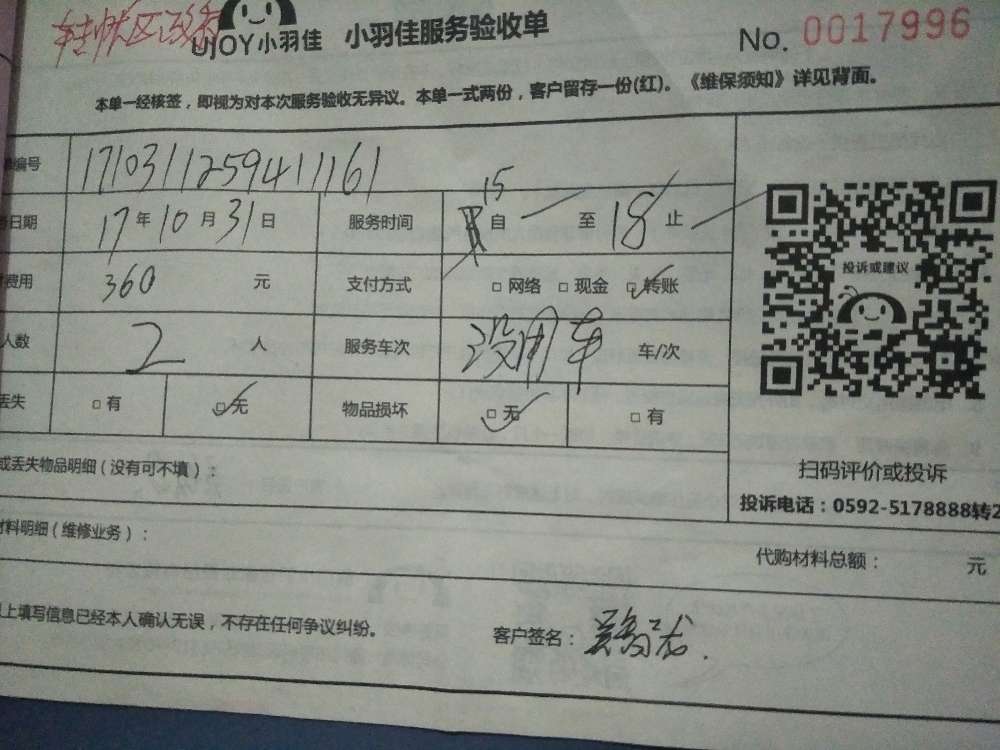 挂帐区政务
UJOY小羽佳 小羽佳服务验收单 No. 0017996
本单一经核签，即视为对本次服务验收无异议。本单一式两份，客户留存一份(红)。《维保须知》详见背面。
编号 1710311259411161
日期 17年10月31日 服务时间 自 15 至 18 止
费用 360 元 支付方式 □网络 □现金 □转账
人数 2 人 服务车次 没用车 车/次
丢失 □有 □无 物品损坏 □无 □有
投诉或建议
扫码评价或投诉
投诉电话：0592-5178888转2
或丢失物品明细（没有可不填）：
材料明细（维修业务）：
代购材料总额： 元
上填写信息已经本人确认无误，不存在任何争议纠纷。
客户签名：